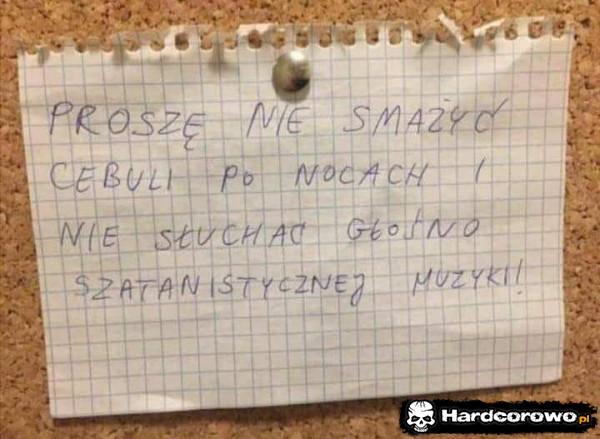 PROSZĘ NIE SMAŻYĆ
CEBULI PO NOCACH I
NIE SŁUCHAĆ GŁOŚNO
SZATANISTYCZNEJ MUZYKI!
Hardcorowo.pl